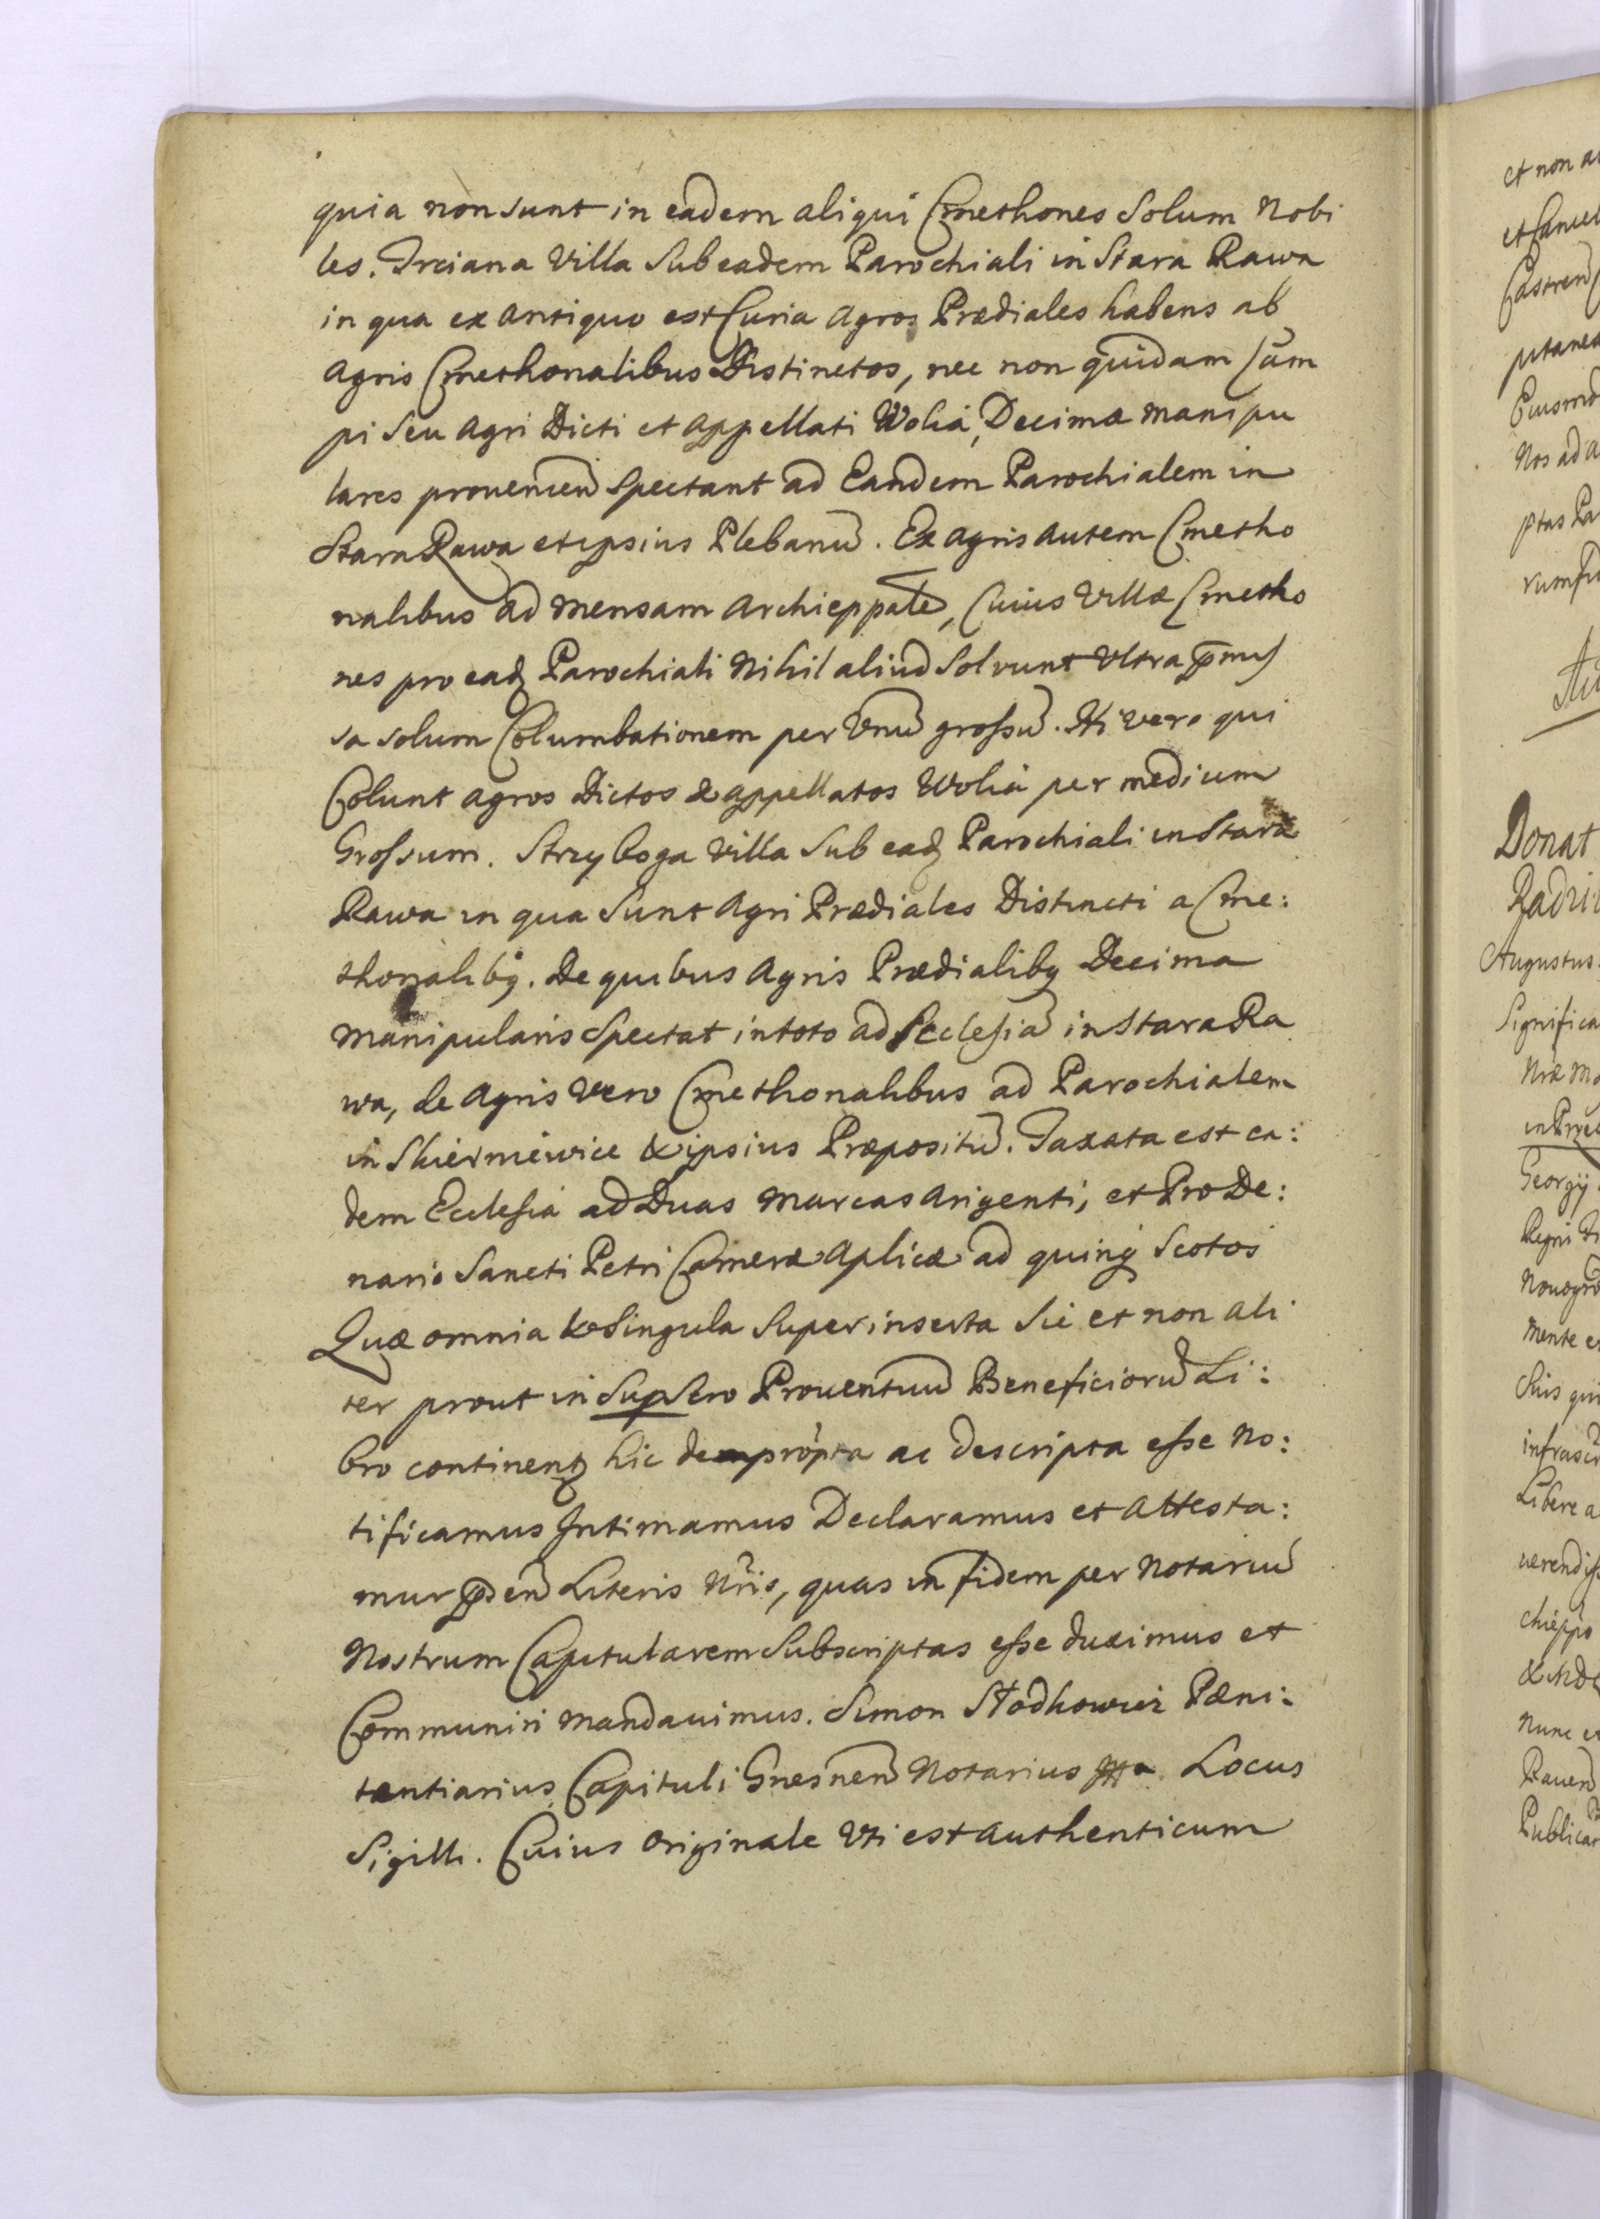 quia non sunt in eadem aliqui Cmethones Solum Nobi
les. Trciana Villa Sub eadem Parochiali in Stara Rawa
in qua ex antiquo est Curia Agros Prædiales habens ab
Agris Cmethonalibus Distinctos, nec non quidam Cam
pi Seu Agri Dicti et appellati Wolia, Decimæ manipu
lares prouenien Spectant ad Eandem Parochialem in
Stara Rawa et ipsius Plebanū. Ex Agris autem Cmetho
nalibus ad mensam Archieppalē, Cuius Villæ Cmetho
nes pro eadꝫ Parochiali Nihil aliud Solvunt Vltra p̄mis
sa solum Columbationem per Vnū grossū. Hi vero qui
Colunt agros Dictos & appellatos Wolia per medium
Grossum. Strzyboga Villa Sub eadꝫ Parochiali in Stara
Rawa in qua Sunt Agri Prædiales Distincti a Cme:
thonalibꝫ. De quibus Agris Prædialibꝫ Decima
Manipularis Spectat in toto ad Ecclesiā in Stara Ra
wa, de Agris Vero Cmethonalibus ad Parochialem
in Skierniewice & ipsius Præpositū. Taxata est ea:
dem Ecclesia ad Duas Marcas Argenti, et Pro De:
nario Sancti Petri Cameræ Aplicæ ad quinqꝫ Scotos
Quæ omnia & Singula Superinserta Sic et non ali
ter prout in Supsero Prouentuū Beneficiorū Li:
bro continentꝫ hic deprōpta ac descripta esse No:
tificamus Intimamus Declaramus et Attesta:
mur p̄sen Literis Nr̄is, quas in fidem per Notariū
Nostrum Capitularem Subscriptas esse duximus et
Communiri mandauimus. Simon Stodkowicz Pæni:
tentiarius Capituli Gnesnen Notarius Locus
Sigilli. Cuius Originale Vti est authenticum
et non
Donat
Augustus
Significa
Georgij
Regni
mente
Suis
infrascr
Libere a
Nunc et
Publicar